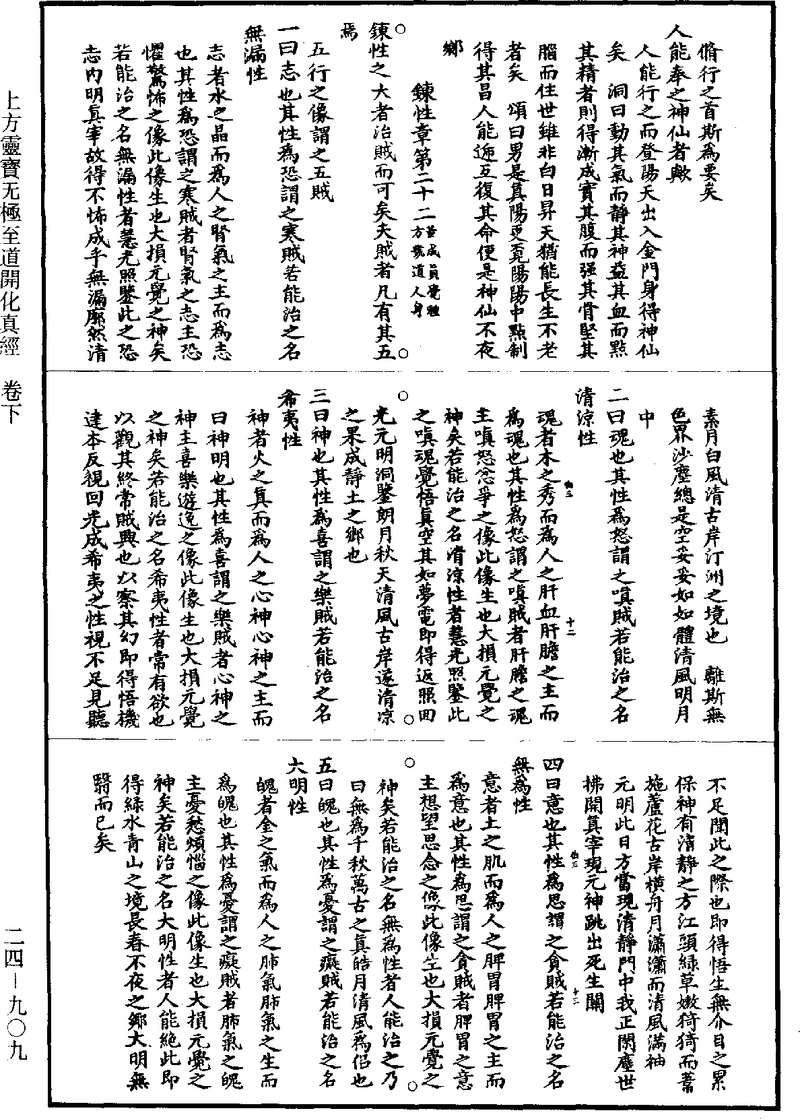 上方靈寶无極至道開化真經　卷下
二四—九〇九
脩行之首斯為要矣
人能奉之神仙者歟
人能行之而登陽天出入金門身得神仙
矣　洞曰動其氣而靜其神益其血而點
其精者則得漸成寶其腹而强其骨堅其
腦而住世雖非白日昇天猶能長生不老
者矣　頌曰男是真陽更覓陽陽中點制
得其昌人能逓互復其命便是神仙不夜
鄉
鍊性章第二十二
鍊性之大者治賊而可矣夫賊者凡有其五
焉
五行之像謂之五賊
一曰志也其性為恐謂之寒賊若能治之名
無漏性
志者水之晶而為人之腎氣之主而為志
也其性為恐謂之寒賊者腎氣之志主恐
懼驚怖之像此像生也大損元覺之神矣
若能治之名無漏性者慧光照鑒此之恐
志內明真宰故得不怖成乎無漏廓然清
素月白風清古岸汀洲之境也　離斯無
色界沙塵總是空妥妥如如體清風明月
中
二曰魂也其性為怒謂之嗔賊若能治之名
清涼性
魂者木之秀而為人之肝血肝膽之主而
為魂也其性為怒謂之嗔賊者肝膽之魂
主嗔怒忿爭之像此像生也大損元覺之
神矣若能治之名清涼性者慧光照鑒此
之嗔魂覺悟真空其如夢電即得返照回
光元明洞鑒朗月秋天清風古岸遂清凉
之果成靜土之鄉也
三曰神也其性為喜謂之樂賊若能治之名
希夷性
神者火之真而為人之心神心神之主而
曰神明也其性為喜謂之樂賊者心神之
神主喜樂遊逸之像此像生也大損元覺
之神矣若能治之名希夷性者常有欲也
以觀其終常賊興也以察其幻即得悟機
達本反視回光成希夷之性視不足見聽
不足聞此之際也即得悟生無介目之累
保神有清靜之方江頭綠草嫩猗猗而蓄
施蘆花古岸橫舟月瀟瀟而清風滿袖
元明此日方當現清靜門中我正閑塵世
拂開真宰現元神跳出死生關
四曰意也其性為思謂之貪賊若能治之名
無為性
意者土之肌而為人之脾胃脾胃之主而
為意也其性為思謂之貪賊者脾胃之意
主想望思念之像此像生也大損元覺之
神矣若能治之名無為性者人能治之乃
曰無為千秋萬古之真皓月清風為侶也
五曰魄也其性為憂謂之癡賊若能治之名
大明性
魄者金之氣而為人之肺氣肺氣之生而
為魄也其性為憂謂之癡賊者肺氣之魄
主憂愁煩惱之像此像生也大損元覺之
神矣若能治之名大明性者人能絕此即
得綠水青山之境長春不夜之鄉大明無
翳而已矣